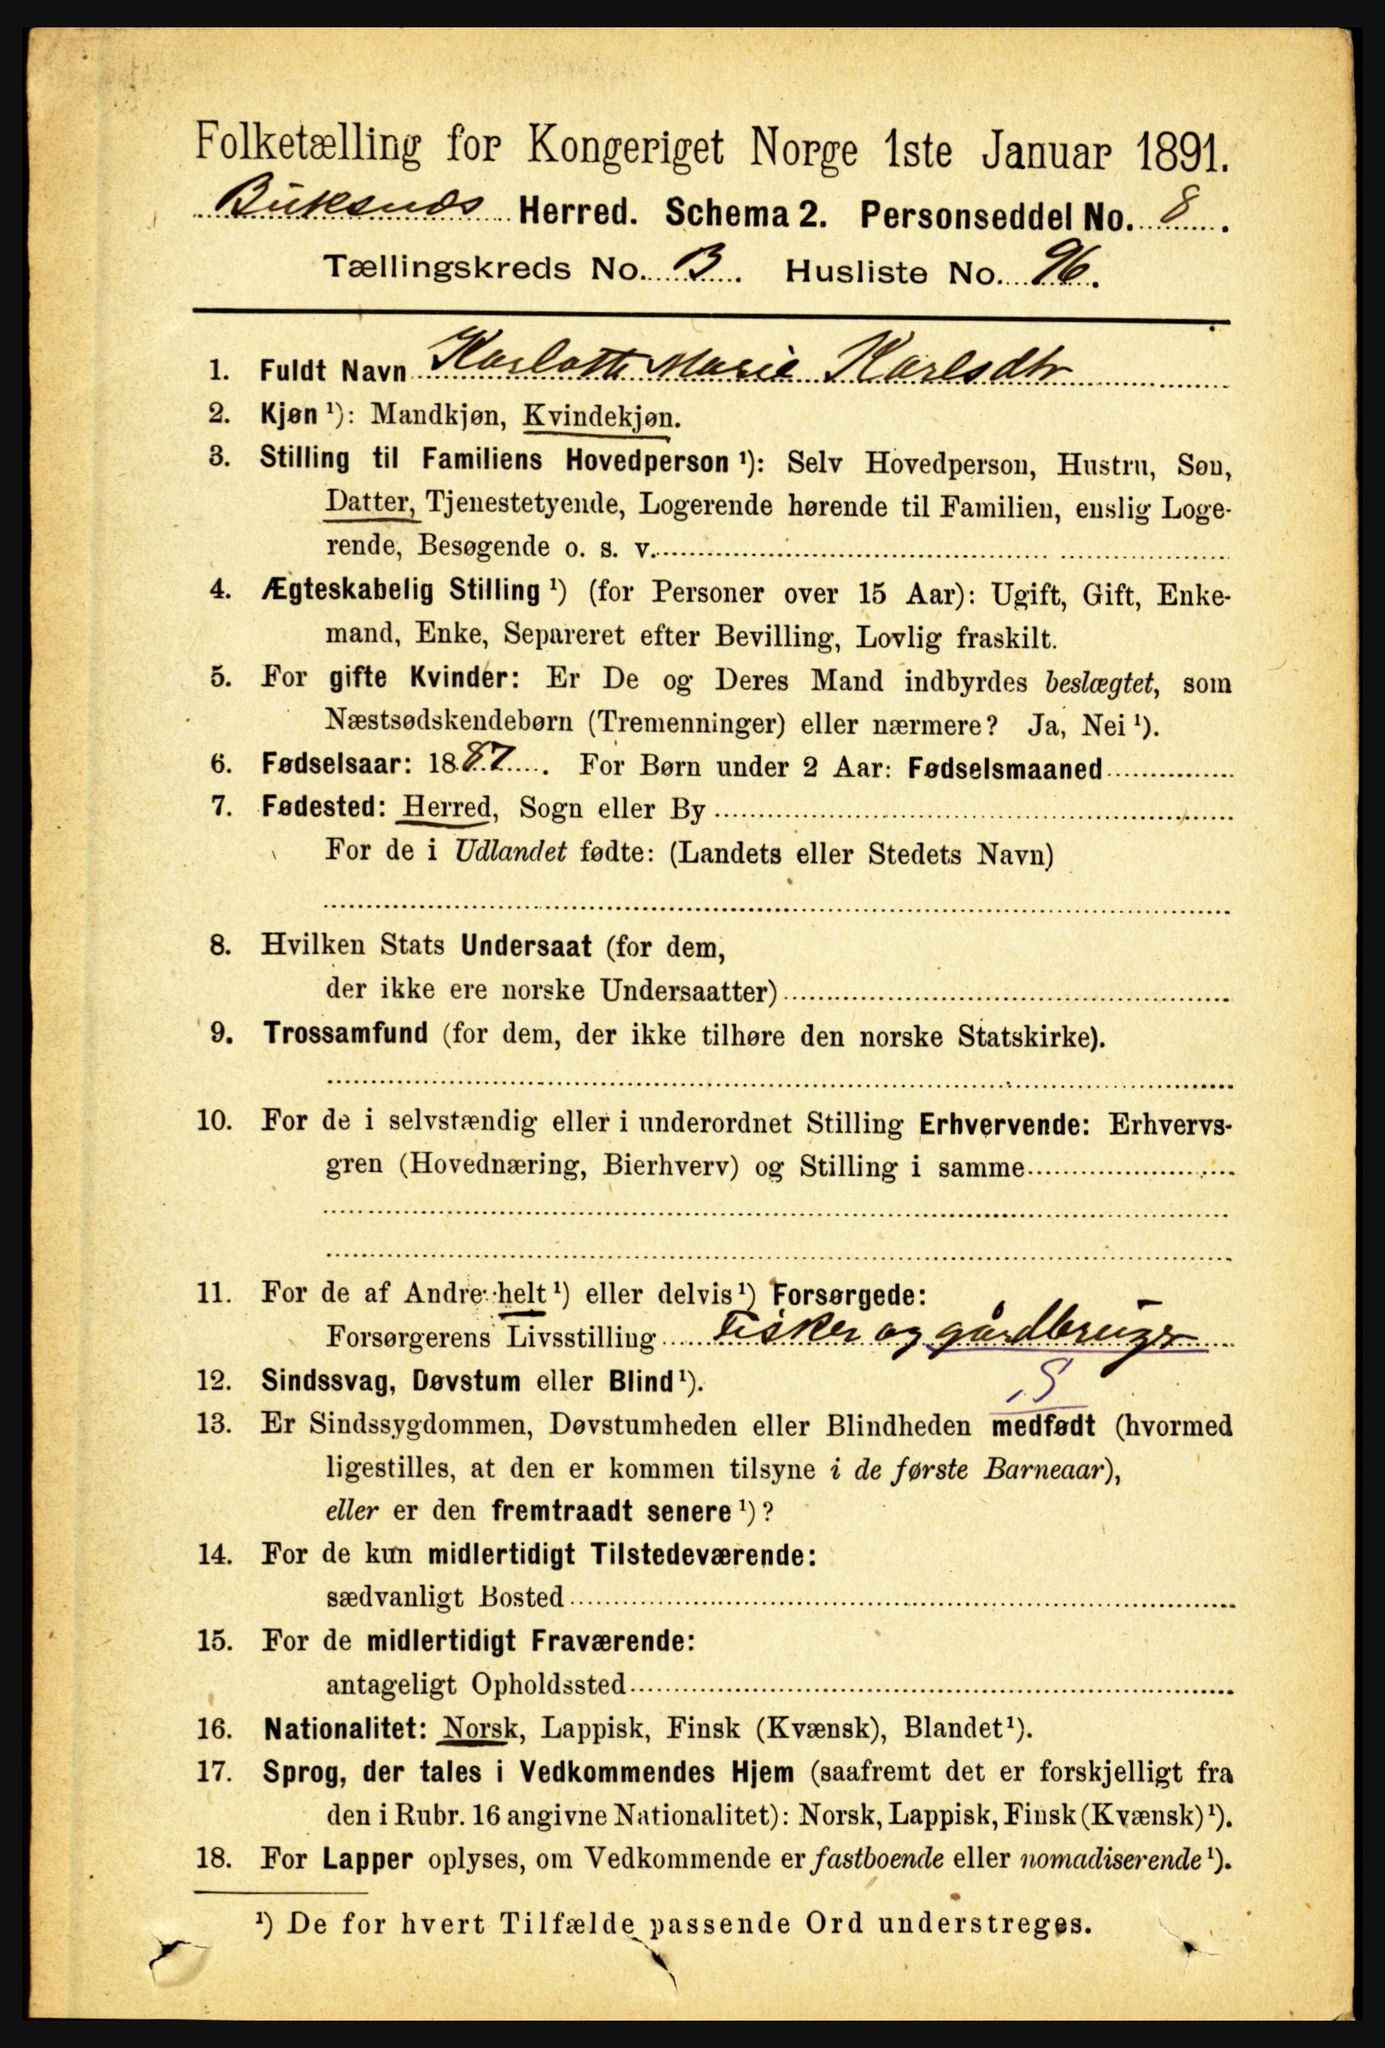 Folketælling for Kongeriget Norge 1ste Januar 1891.
Buksnæs Herred. Schema 2. Personseddel No. 8.
Tællingskreds No. 3. Husliste No. 96.
1. Fuldt Navn Karlotte Marie Karlsdtr
2. Kjøn ¹): Mandkjøn, Kvindekjøn.
3. Stilling til Familiens Hovedperson ¹): Selv Hovedperson, Hustru, Søn,
Datter, Tjenestetyende, Logerende hørende til Familien, enslig Loge-
rende, Besøgende o. s. v.
4. Ægteskabelig Stilling ¹) (for Personer over 15 Aar): Ugift, Gift, Enke-
mand, Enke, Separeret efter Bevilling, Lovlig fraskilt.
5. For gifte Kvinder: Er De og Deres Mand indbyrdes beslægtet, som
Næstsødskendebørn (Tremenninger) eller nærmere? Ja, Nei ¹).
6. Fødselsaar: 1887. For Børn under 2 Aar: Fødselsmaaned
7. Fødested: Herred, Sogn eller By
For de i Udlandet fødte: (Landets eller Stedets Navn)
8. Hvilken Stats Undersaat (for dem,
der ikke ere norske Undersaatter)
9. Trossamfund (for dem, der ikke tilhøre den norske Statskirke).
10. For de i selvstændig eller i underordnet Stilling Erhvervende: Erhvervs-
gren (Hovednæring, Bierhverv) og Stilling i samme
11. For de af Andre helt ¹) eller delvis ¹) Forsørgede:
Forsørgerens Livsstilling Fisker og gårdbruger
12. Sindssvag, Døvstum eller Blind ¹). S
13. Er Sindssygdommen, Døvstumheden eller Blindheden medfødt (hvormed
ligestilles, at den er kommen tilsyne i de første Barneaar),
eller er den fremtraadt senere ¹)?
14. For de kun midlertidigt Tilstedeværende:
sædvanligt Bosted
15. For de midlertidigt Fraværende:
antageligt Opholdssted
16. Nationalitet: Norsk, Lappisk, Finsk (Kvænsk), Blandet ¹).
17. Sprog, der tales i Vedkommendes Hjem (saafremt det er forskjelligt fra
den i Rubr. 16 angivne Nationalitet): Norsk, Lappisk, Finsk (Kvænsk) ¹).
18. For Lapper oplyses, om Vedkommende er fastboende eller nomadiserende ¹).
¹) De for hvert Tilfælde passende Ord understreges.